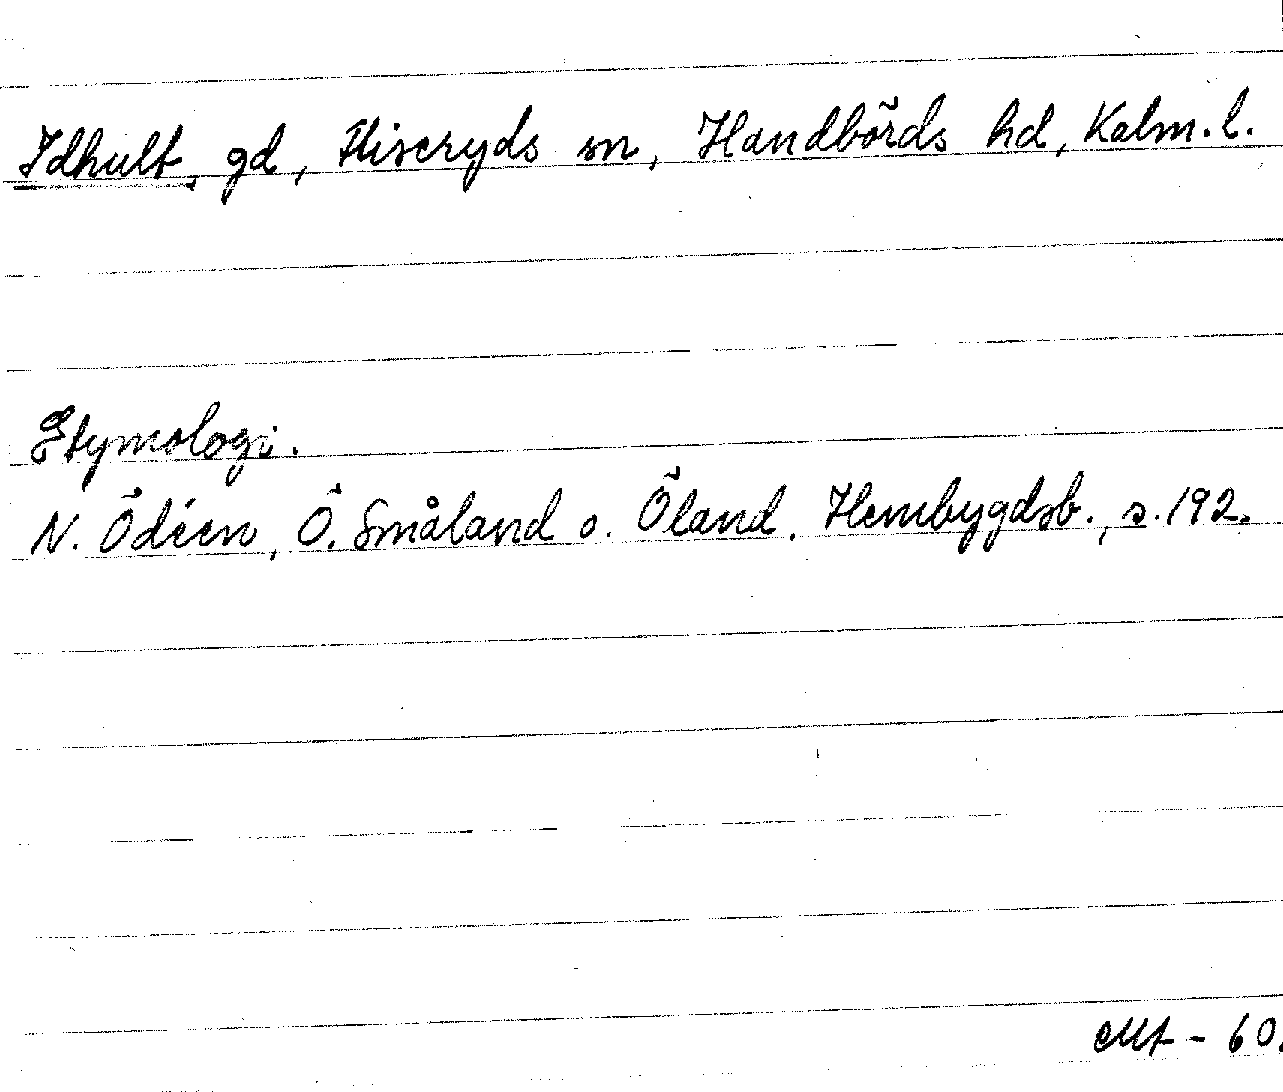 Idhult, gd, Fliseryds sn, Handbörds hd, Kalm. l.
Etymologi.
N. Ödéen, Ö. Småland o. Öland. Hembygdsb., s. 192.
Mt - 60.